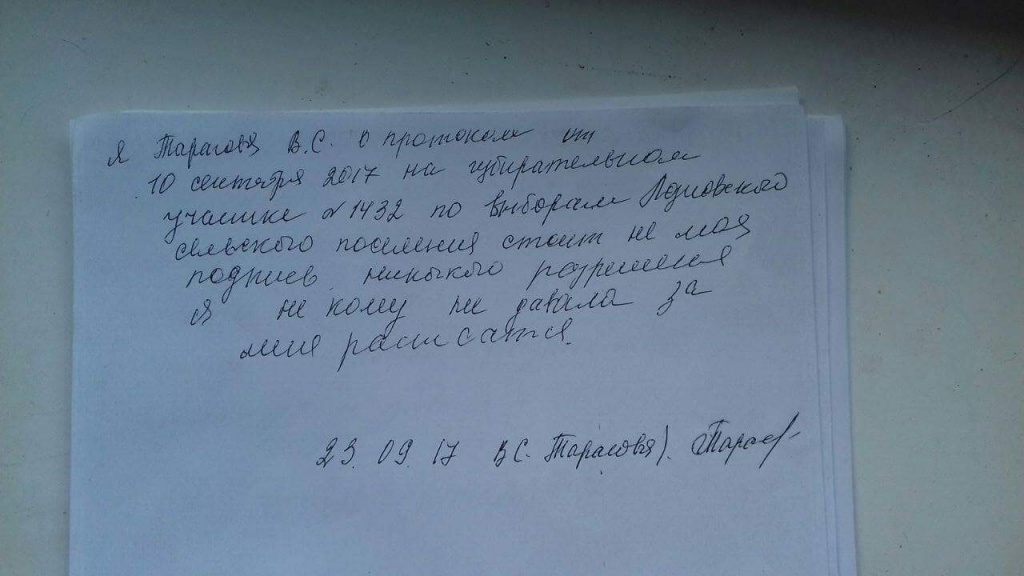 Я Тарасова В.С. в протоколе от
10 сентября 2017 на избирательном
участке №1432 по выборам
сельского поселения стоит не моя
подпись никакого разрешения
я не кому не давала за
меня расписатся.
23.09.17 В.С. Тарасова).